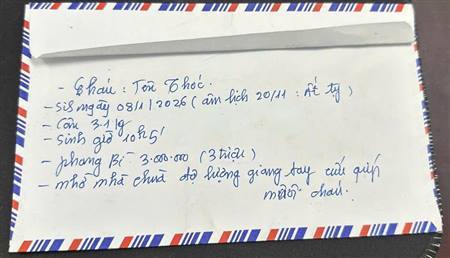 - Cháu : Tôn Thóc.
- Sis ngày 08/1/2026 (âm lịch 20/11 : Ất Tỵ)
- Cân 3.1 kg
- Sinh giờ 10h5'
- phong Bì - 3.000.000 (3 triệu)
- nhờ nhà chùa độ lượng giang tay cứu giúp
cháu.